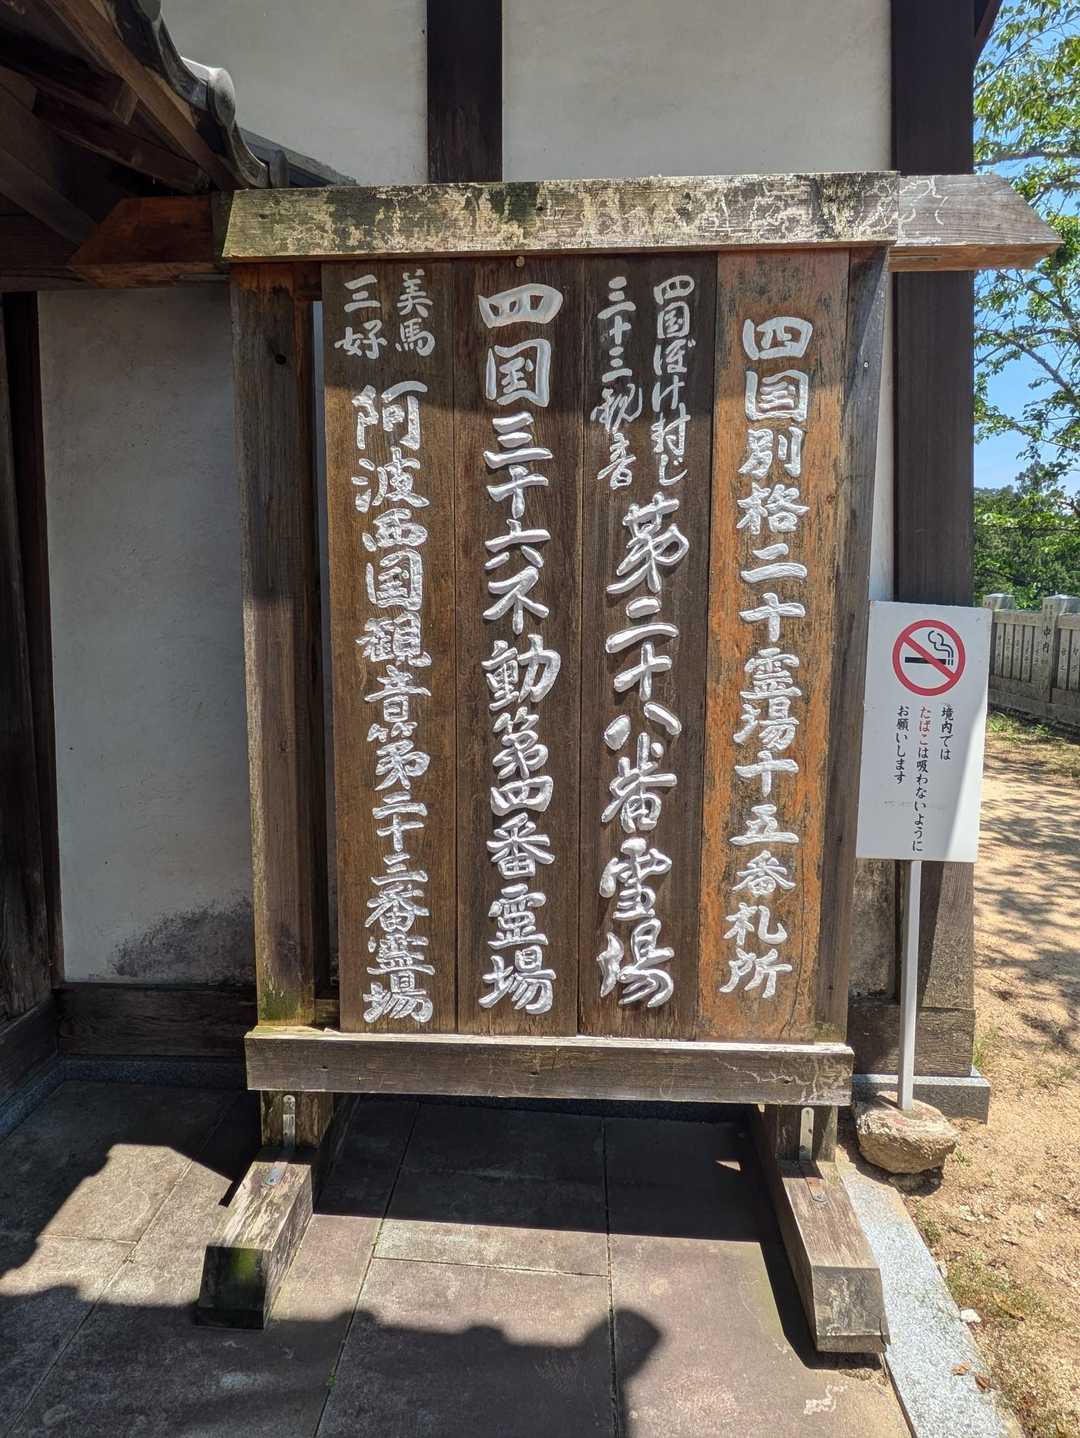 四国別格二十霊場十五番札所
四国ぼけ封じ
三十三観音
第二十八番霊場
四国三十六不動第四番霊場
美馬
三好
阿波西国観音第二十三番霊場
境内では
たばこは吸わないように
お願いします